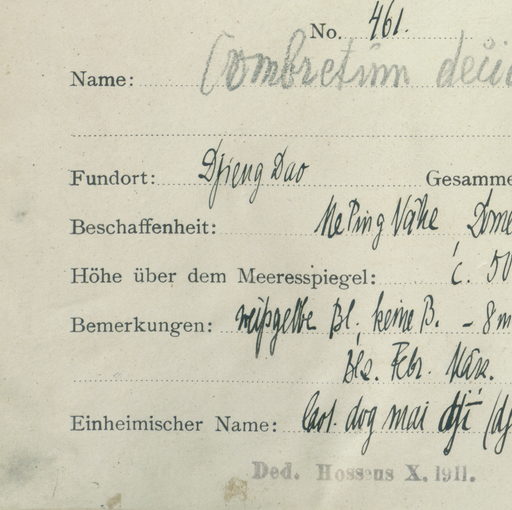 No. 461.
Name: Combretum deci
Fundort: Djieng Dao Gesamme
Beschaffenheit: Me Ping Nähe, Dome
Höhe über dem Meeresspiegel: c. 50
Bemerkungen: weißgelbe Bl. keine B. - 8 m
Blz. Febr. März.
Einheimischer Name: dog mai (dj
Ded. Hosseus X. 1911.